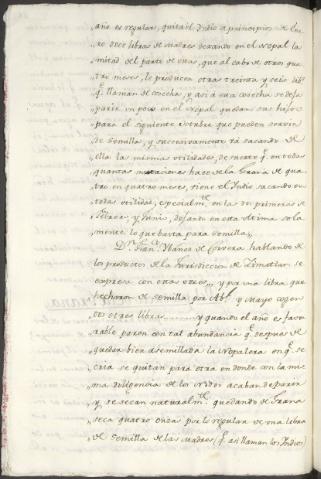 año es regular, quita el Indio a principios de Ene-
ro doce libras de madres dexando en el Nopal la
mitad del parto de ellas, que al cabo de otros qua-
tro meses, le producen otras treinta y seis lib.s
q.e llaman de cosecha, y así á una cosecha se desa-
parir un poco en el Nopal quedan sus hijos
para el siguiente Octubre que pueden servir
de semilla, y succesivamente vá sacando de
ella las mismas utilidades, de suerte q.e en todas
quantas mutaciones hace de la Grana de qua-
tro, en quatro meses, tiene el Indio sacando su
todas utilidad, especialm.te en las dos primeras de
Febrero, y Junio, dexando en esta ultima sola
mente lo que basta para semilla.
D.n Fran.co Ybañez de Corvera hablando de
los productos de la Jurisdiccion de Zimatlan se
expresa con estas voces, y por una libra, que
hecharon de semilla por Ab.l y Mayo cogen
otras tres libras ........ y quando el año es favo
rable paren con tal abundancia q.e despues de
quedar bien asemillada la Nopalera en q.e se
cria se quitan para otra en donde con la mis
ma diligencia de los nidos acaban de parir
y se secan naturalm.te quedando de Grana
seca quatro onzas por lo regular de una libra
de semilla de las madres (q.e asi llaman los Indios)